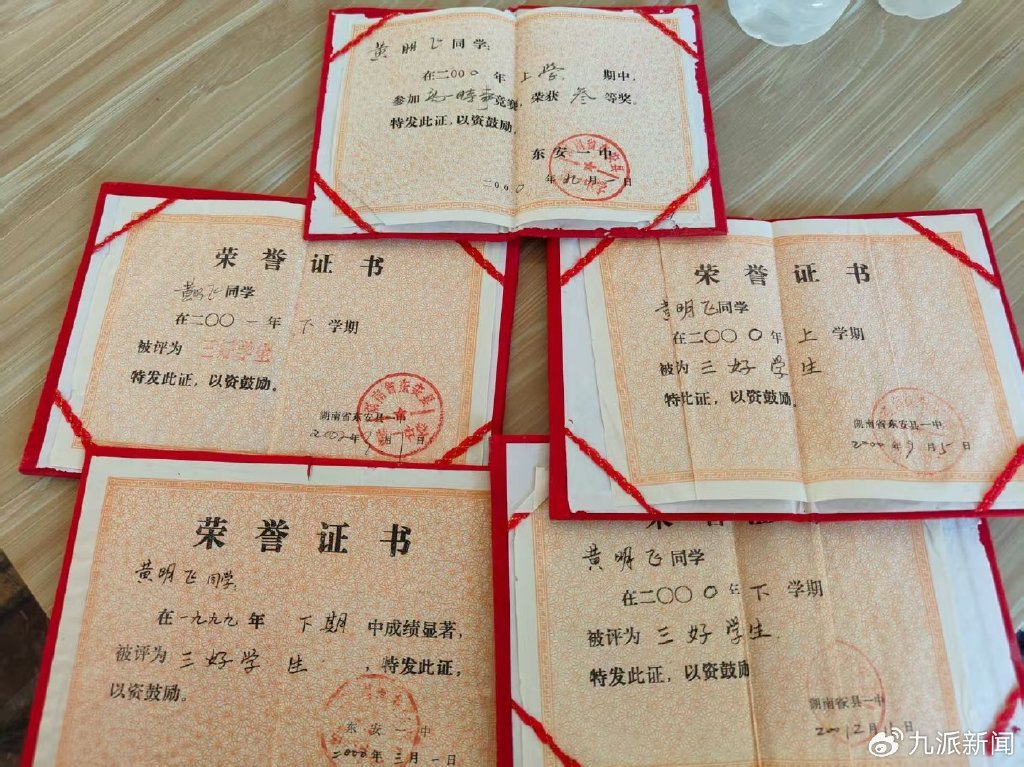 黄明飞同学:
在二000年上学期中,
参加 竞赛,荣获叁等奖。
特发此证,以资鼓励,
东安一中
二000年九月一日
荣誉证书
黄明飞同学
在二〇〇一年下学期
被评为三好学生
特发此证,以资鼓励。
湖南省东安县一中
湖南省东安县
荣誉证书
黄明飞同学
在二〇〇〇年上学期
被为三好学生
特此证,以资鼓励。
湖南省东安县一中
2000年9月5日
荣誉证书
黄明飞同学
在一九九九年下期中成绩显著,
被评为三好学生,特发此证,
以资鼓励。
东安一中
2000年三月一日
黄明飞同学
在二〇〇0年下学期
被评为三好学生.
特发此证,以资鼓
湖南省 县一中
九派新闻